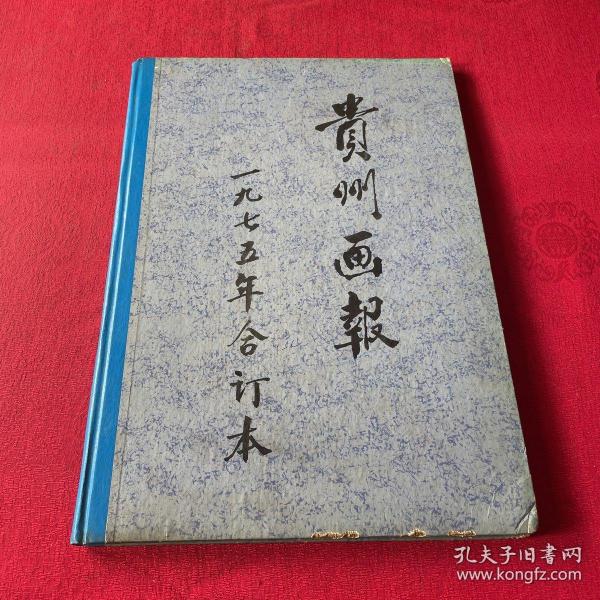 貴州画報
一九七五年合订本
孔夫子旧書网
www.kongfz.com